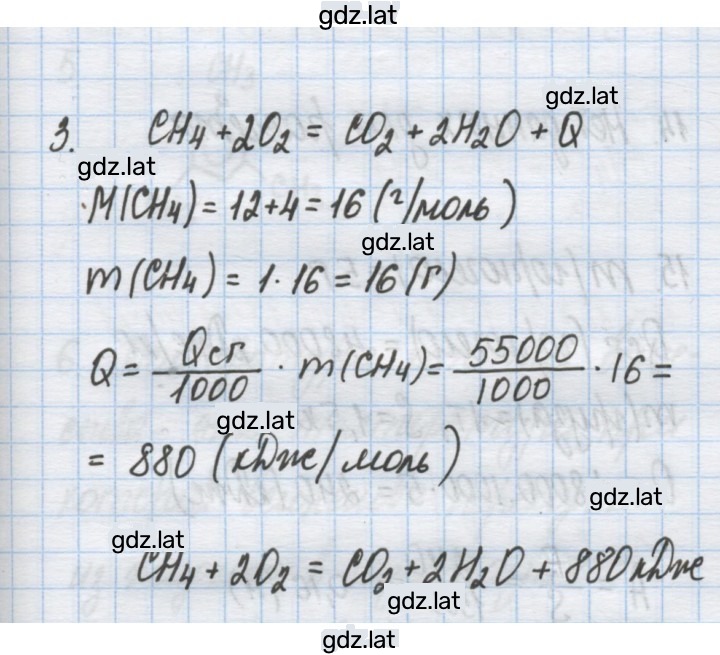 gdz.lat
gdz.lat
3. CH₄ + 2O₂ = CO₂ + 2H₂O + Q
gdz.lat
M(CH₄) = 12 + 4 = 16 (г/моль)
gdz.lat
m(CH₄) = 1 · 16 = 16 (г)
Q = Qсг/1000 · m(CH₄) = 55000/1000 · 16 =
gdz.lat
= 880 (кДж/моль)
gdz.lat
gdz.lat
CH₄ + 2O₂ = CO₂ + 2H₂O + 880 кДж
gdz.lat
gdz.lat